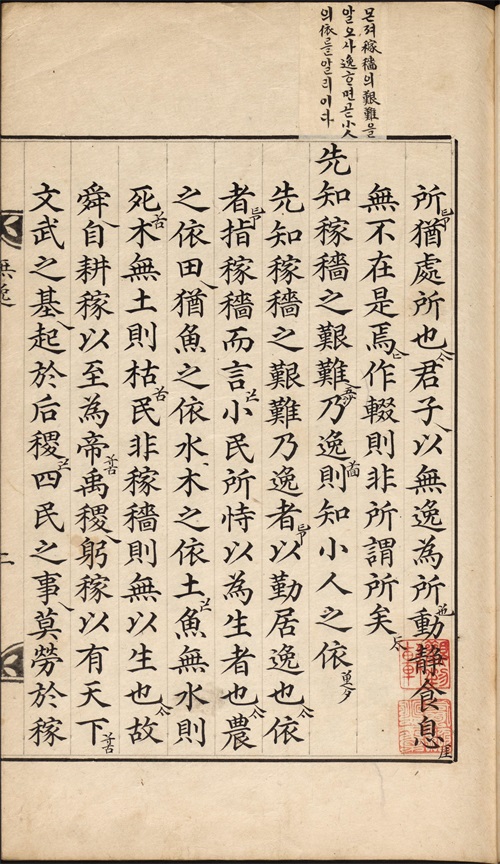 몬져稼穡의艱難을
알오사逸호면곧小人
의依를알리이다
所猶處所也君子以無逸為所動靜食息
無不在是焉作輟則非所謂所矣
先知稼穡之艱難乃逸則知小人之依
先知稼穡之艱難乃逸者以勤居逸也依
者指稼穡而言小民所恃以為生者也農
之依田猶魚之依水木之依土魚無水則
死木無土則枯民非稼穡則無以生也故
舜自耕稼以至為帝禹稷躬稼以有天下
文武之基起於后稷四民之事莫勞於稼
無逸
二